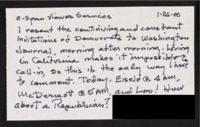 C-Span Viewer Services 1-26-00
I resent the continuing and constant
invitations of Democrats to Washington
Journal, morning after morning. Living
in California makes it impossible to
call-in, so this is the only way I have
to comment. Today, Eisele @ 4am,
McDermott @ 5am, and Lori! How
about a Republican?